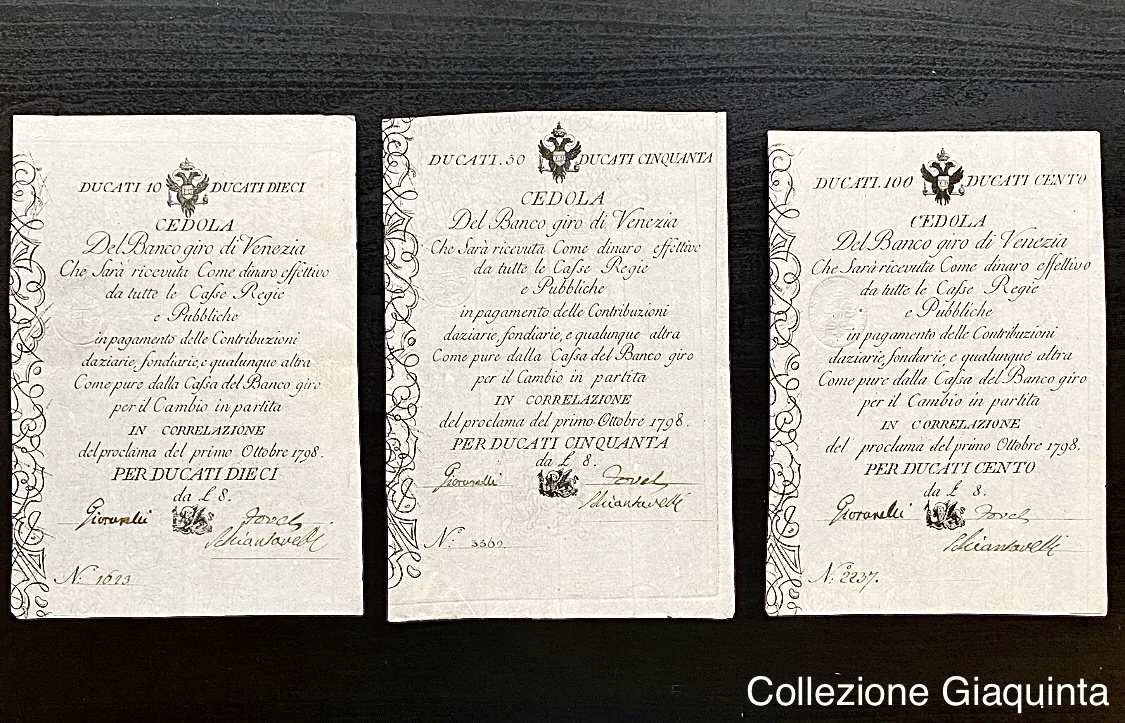 DUCATI 10 DUCATI DIECI
CEDOLA
Del Banco giro di Venezia
Che Sarà ricevuta Come dinaro effettivo
da tutte le Caſse Regie
e Pubbliche
in pagamento delle Contribuzioni
daziarie, fondiarie, e qualunque altra
Come pure dalla Caſsa del Banco giro
per il Cambio in partita
IN CORRELAZIONE
del proclama del primo Ottobre 1798.
PER DUCATI DIECI
da £ 8.
Giovanelli
N.º 1623
DUCATI.50 DUCATI CINQUANTA
CEDOLA
Del Banco giro di Venezia
Che Sarà ricevuta Come dinaro effettivo
da tutte le Caſse Regie
e Pubbliche
in pagamento delle Contribuzioni
daziarie, fondiarie, e qualunque altra
Come pure dalla Caſsa del Banco giro
per il Cambio in partita
IN CORRELAZIONE
del proclama del primo Ottobre 1798.
PER DUCATI CINQUANTA
da £ 8.
Giovanelli
N.º
DUCATI.100 DUCATI CENTO
CEDOLA
Del Banco giro di Venezia
Che Sarà ricevuta Come dinaro effettivo
da tutte le Caſse Regie
e Pubbliche
in pagamento delle Contribuzioni
daziarie, fondarie, e qualunque altra
Come pure dalla Caſsa del Banco giro
per il Cambio in partita
IN CORRELAZIONE
del proclama del primo Ottobre 1798.
PER DUCATI CENTO
da £ 8.
Giovanelli
N.º 2237.
Collezione Giaquinta